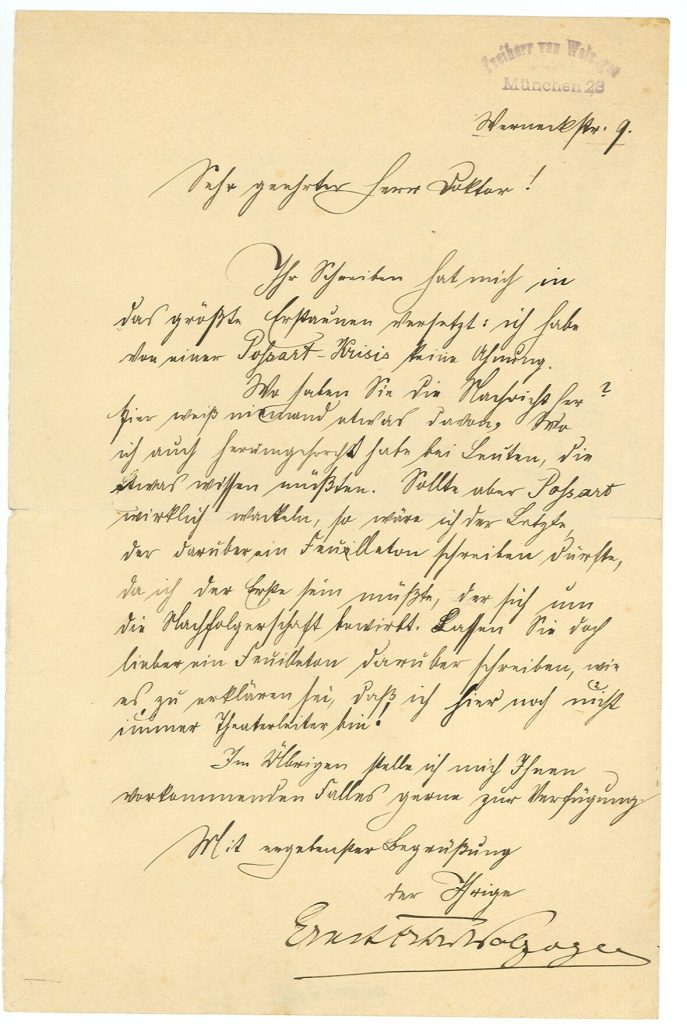 Freiherr von Wolzogen
München 23
Werneckstr. 9.
Sehr geehrter Herr Doktor!
Ihr Schreiben hat mich in
das größte Erstaunen versetzt: ich habe
von einer Possart-Krisis keine Ahnung.
Wo haben Sie die Nachricht her?
Hier weiß niemand etwas davon, wo
ich auch herumgehorcht habe bei Leuten, die
etwas wissen müßten. Sollte aber Possart
wirklich wackeln, so wäre ich der Letzte,
der darüber ein Feuilleton schreiben dürfte,
da ich der Erste sein müßte, der sich um
die Nachfolgerschaft bewirbt. Lassen Sie doch
lieber ein Feuilleton darüber schreiben, wie
es zu erklären sei, daß ich hier noch nicht
immer Theaterleiter bin!
Im Übrigen stelle ich mich Ihnen
vorkommenden Falles gerne zur Verfügung.
Mit ergebenster Begrüßung
der Ihrige
Ernst Wolzogen